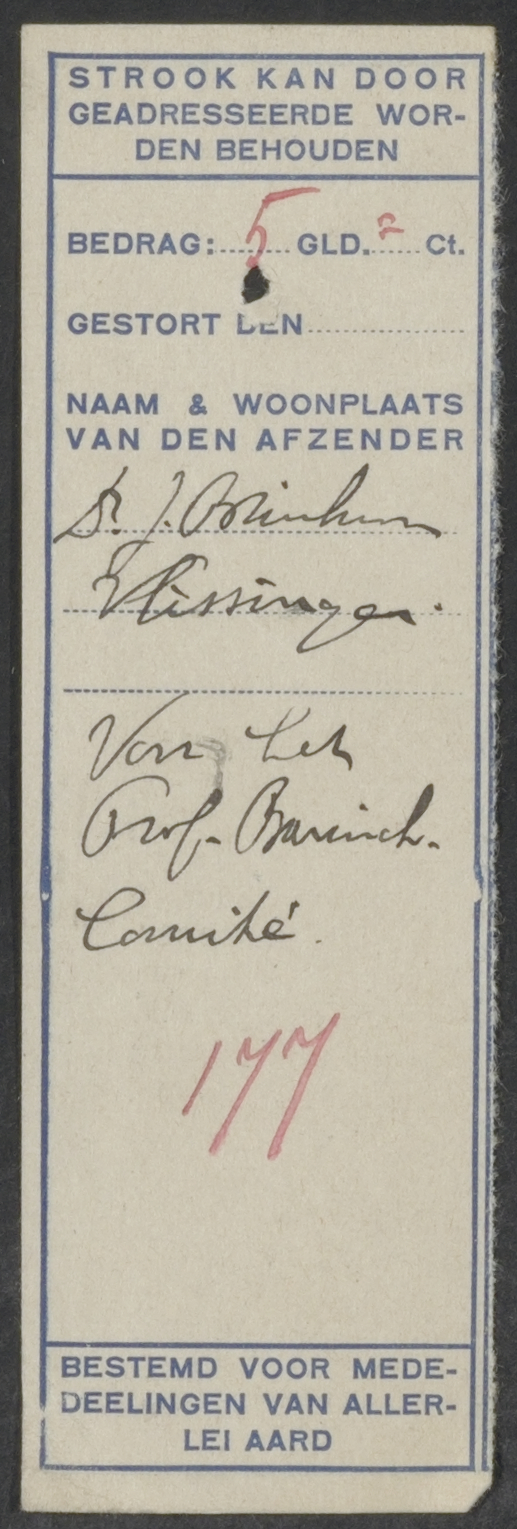 STROOK KAN DOOR
GEADRESSEERDE WOR-
DEN BEHOUDEN
BEDRAG: 5 GLD. Ct.
GESTORT DEN
NAAM & WOONPLAATS
VAN DEN AFZENDER
Dr. J.
Vlissingen.
Van het
Prof. Barusch.
Comité.
177
BESTEMD VOOR MEDE-
DEELINGEN VAN ALLER-
LEI AARD